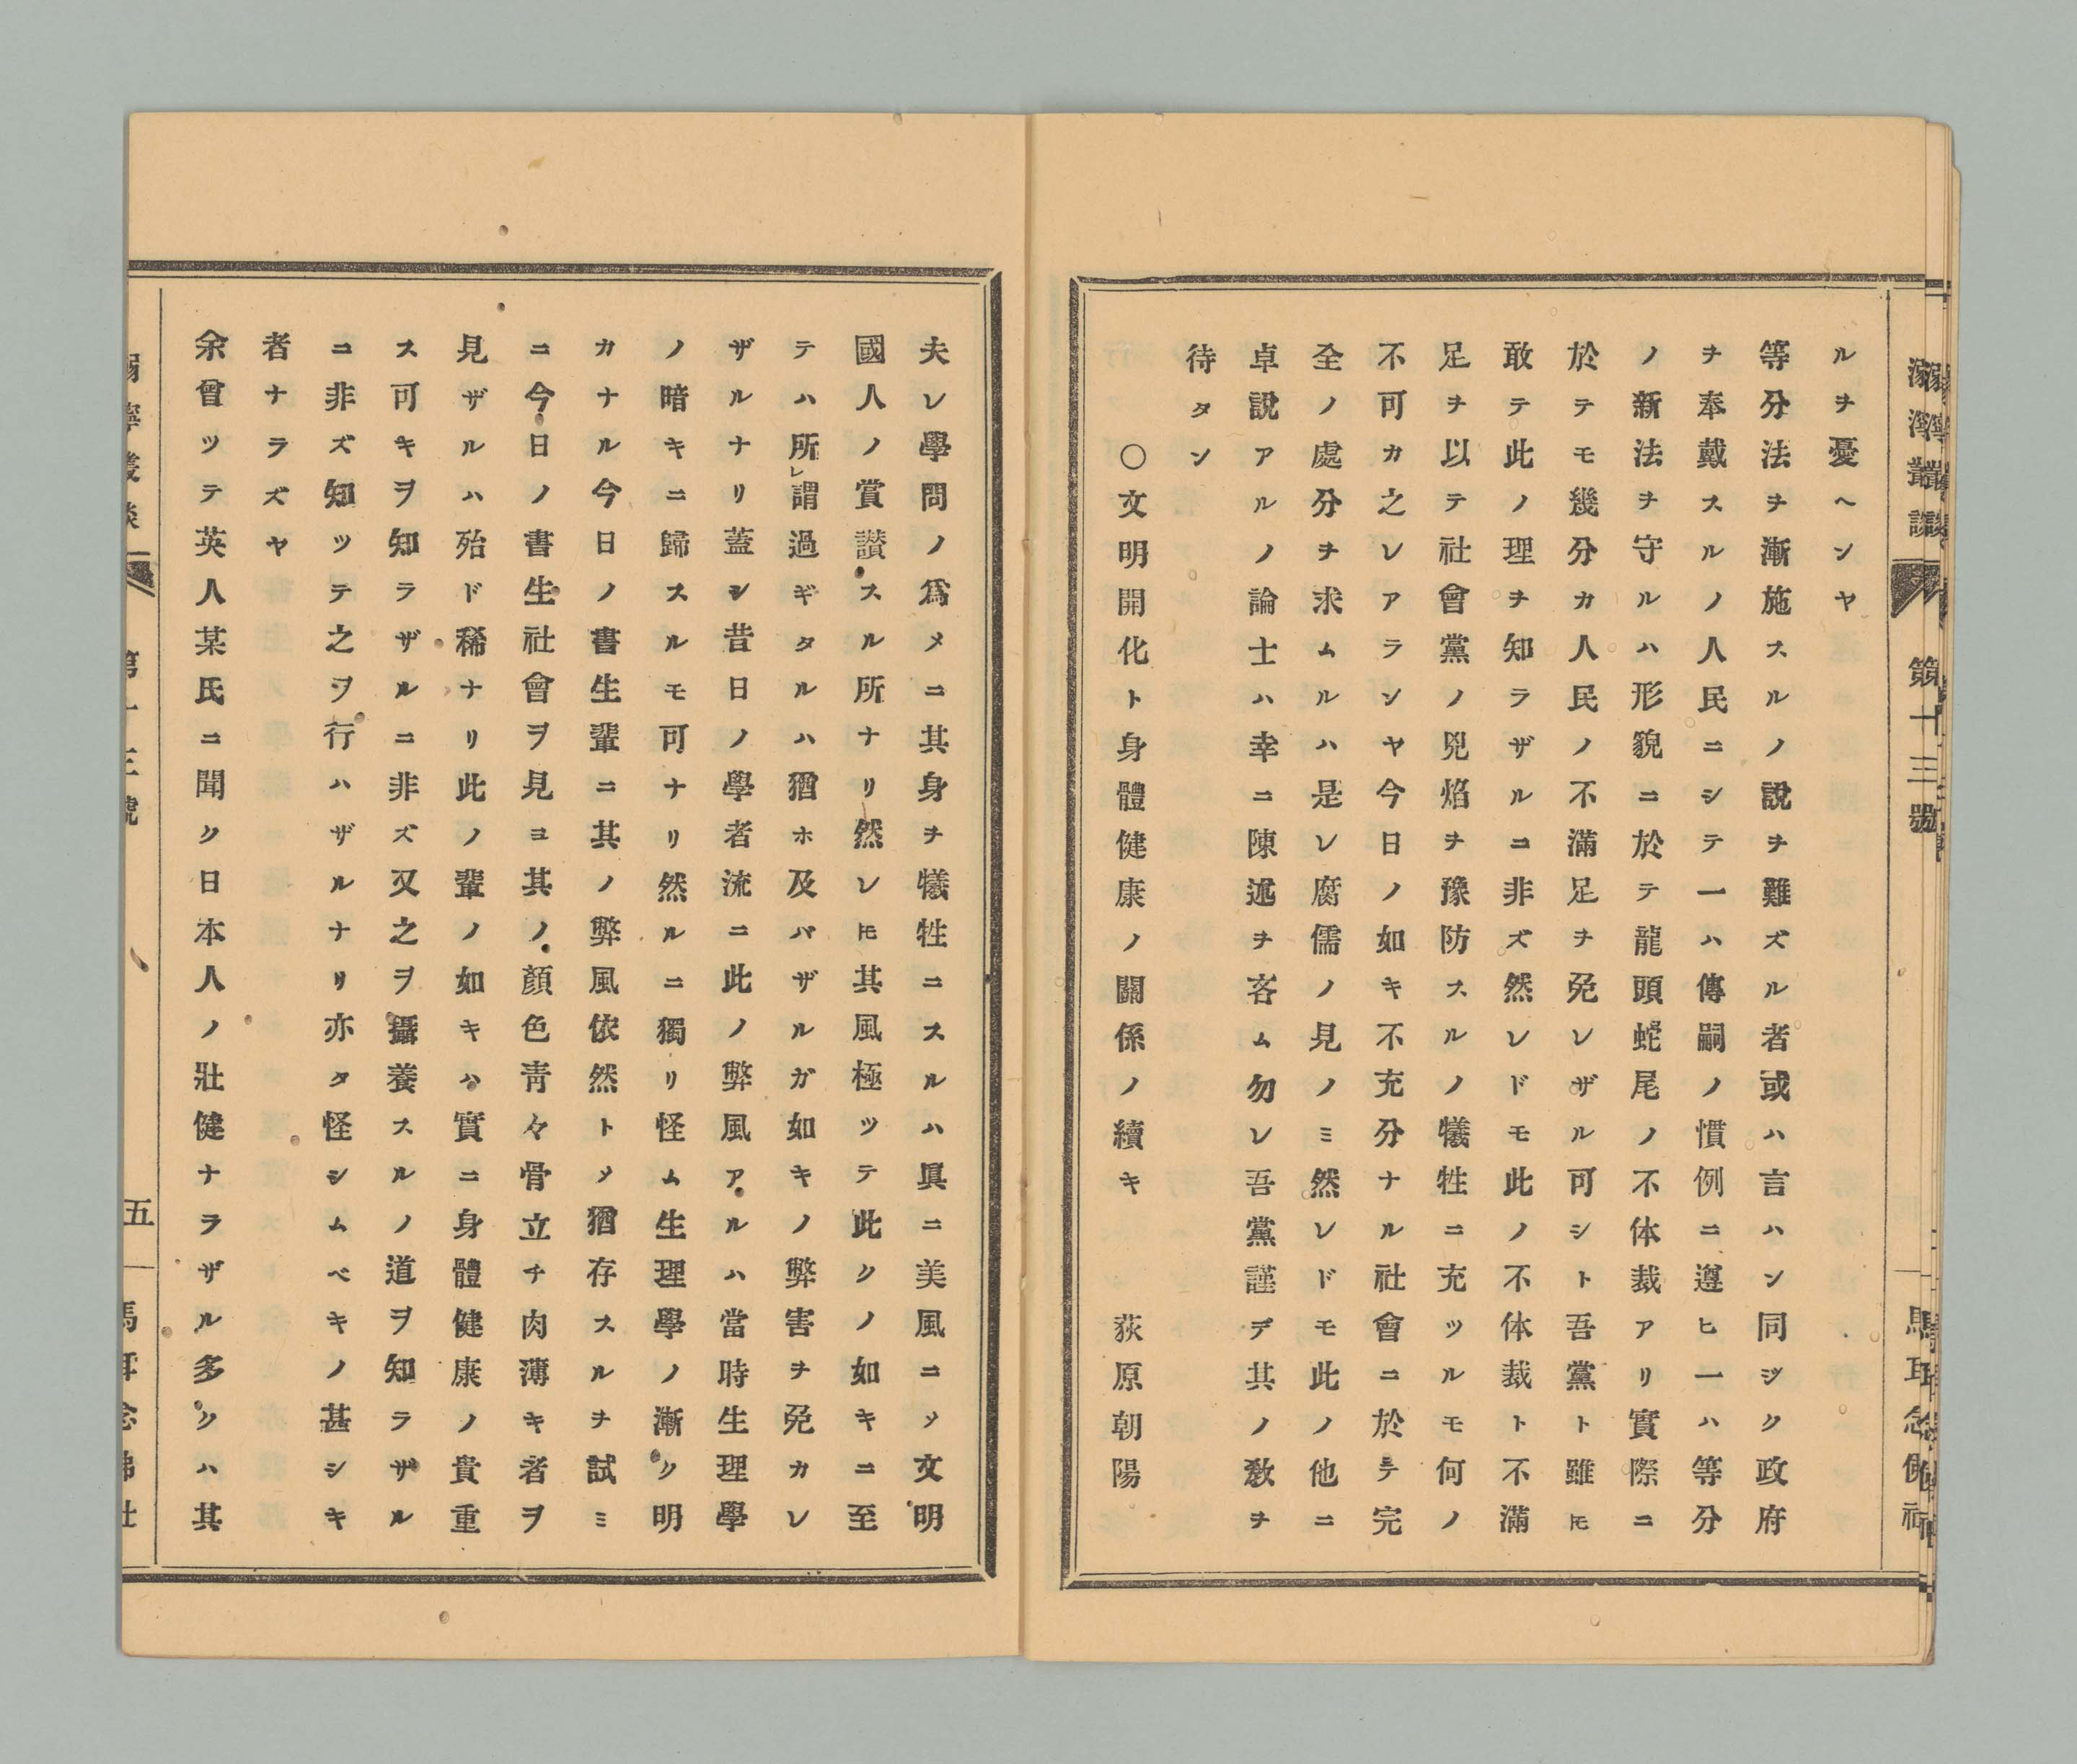 第十三號
ルヲ憂ヘンヤ
等分法ヲ漸施スルノ說ヲ難ズル者或ハ言ハン同ジク政府
ヲ奉戴スルノ人民ニシテ一ハ傳嗣ノ慣例ニ遵ヒ一ハ等分
ノ新法ヲ守ルハ形貌ニ於テ龍頭蛇尾ノ不体裁アリ實際ニ
於テモ幾分カ人民ノ不滿足ヲ免レザル可シト吾黨ト雖𪜈
敢テ此ノ理ヲ知ラザルコ非ズ然レドモ此ノ不体裁ト不滿
足ヲ以テ社會黨ノ兇焰ヲ豫防スルノ犧牲ニ充ツルモ何ノ
不可カ之レアランヤ今日ノ如キ不充分ナル社會ニ於テ完
全ノ處分ヲ求ムルハ是レ腐儒ノ見ノミ然レドモ此ノ他ニ
卓說アルノ論士ハ幸ニ陳述ヲ吝ム勿レ吾黨謹デ其ノ敎ヲ
待タン
○文明開化ト身體健康ノ關係ノ續キ　荻原朝陽
夫レ學問ノ爲メニ其身ヲ犧牲ニスルハ眞ニ美風ニノ文明
國人ノ賞讃スル所ナリ然レ𪜈其風極ツテ此クノ如キニ至
テハ所レ謂過ギタルハ猶ホ及バザルガ如キノ弊害ヲ免カレ
ザルナリ蓋シ昔日ノ學者流ニ此ノ弊風アルハ當時生理學
ノ暗キニ歸スルモ可ナリ然ルニ獨リ怪ム生理學ノ漸ク明
カナル今日ノ書生輩ニ其ノ弊風依然トメ猶存スルヲ試ミ
ニ今日ノ書生社會ヲ見ヨ其ノ顏色靑々骨立チ肉薄キ者ヲ
見ザルハ殆ド稀ナリ此ノ輩ノ如キハ實ニ身體健康ノ貴重
ス可キヲ知ラザルニ非ズ又之ヲ攝養スルノ道ヲ知ラザル
ニ非ズ知ツテ之ヲ行ハザルナリ亦タ怪シムベキノ甚シキ
者ナラズヤ
余曾ツテ英人某氏ニ聞ク日本人ノ壯健ナラザル多クハ其
第十三號
五